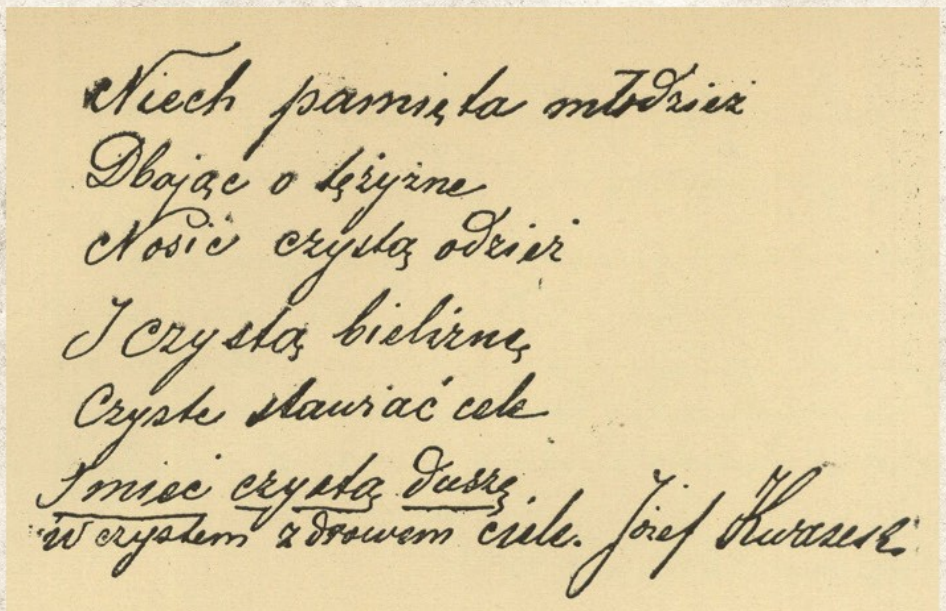 Niech pamięta młodzież
Dbając o tężyzne
Nosić czystą odzież
I czystą bieliznę
Czyste stawiać cele
I mieć czystą duszę
w czystem zdrowem ciele. Józef Kwrasek